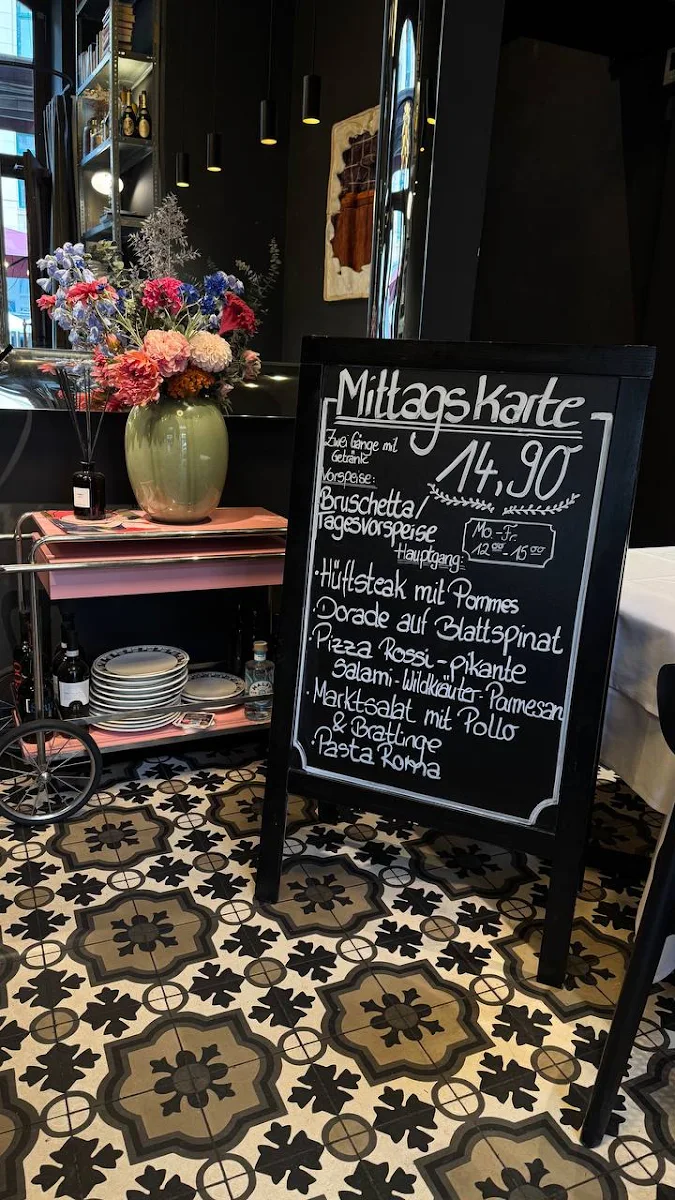 Mittagskarte
Zwei Gänge mit
Getränk
14,90
Vorspeise:
Bruschetta/
Tagesvorspeise
Mo.-Fr.
12 00 - 15 00
Hauptgang:
· Hüftsteak mit Pommes
· Dorade auf Blattspinat
· Pizza Rossi - pikante
Salami - Wildkräuter - Parmesan
· Marktsalat mit Pollo
& Bratlinge
· Pasta Roma